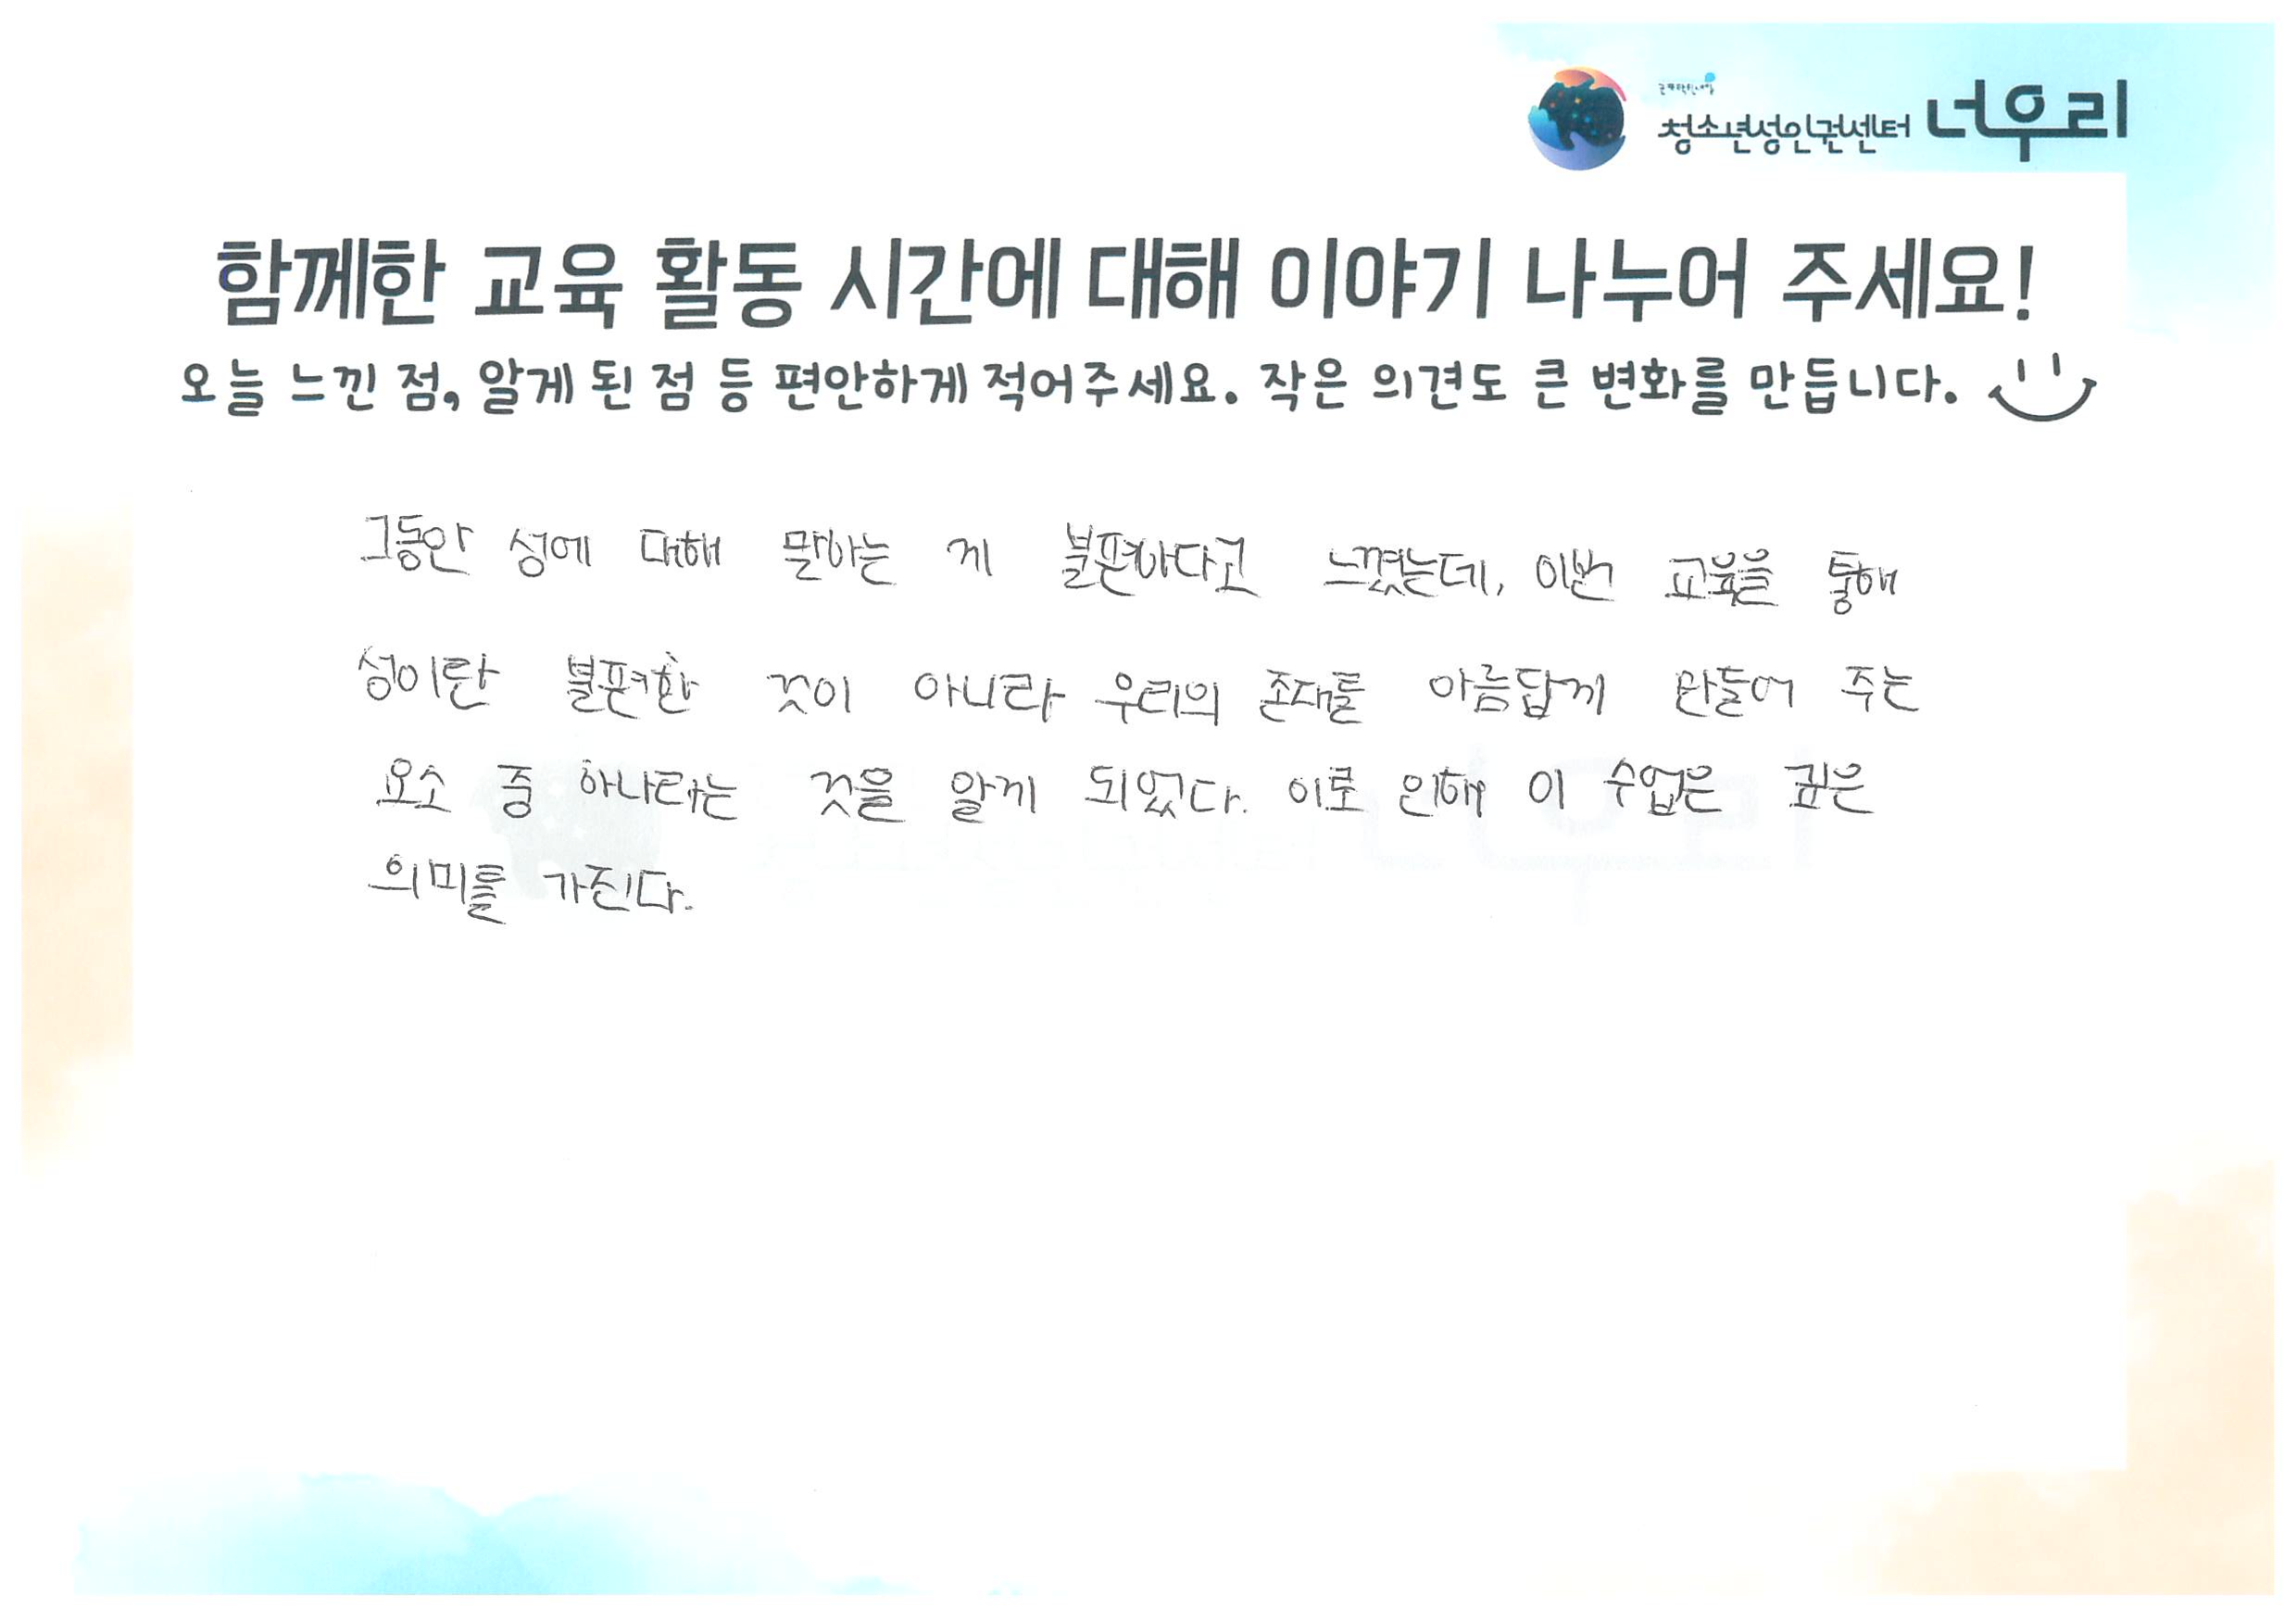 청소년성인권센터 너우리
함께한 교육 활동 시간에 대해 이야기 나누어 주세요!
오늘 느낀 점, 알게 된 점 등 편안하게 적어주세요. 작은 의견도 큰 변화를 만듭니다.
그동안 성에 대해 말하는 게 불편하다고 느꼈는데, 이번 교육을 통해
성이란 불편한 것이 아니라 우리의 존재를 아름답게 만들어 주는
요소 중 하나라는 것을 알게 되었다. 이로 인해 이 수업은 깊은
의미를 가진다.